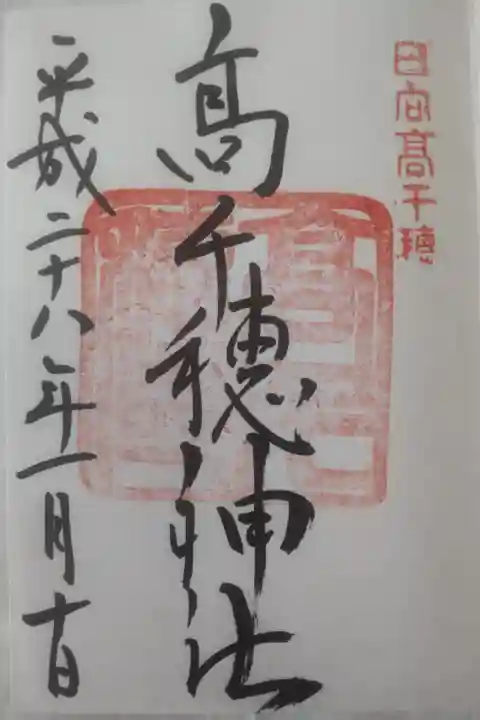 日向髙千穗
高千穂神社
平成二十八年一月十日